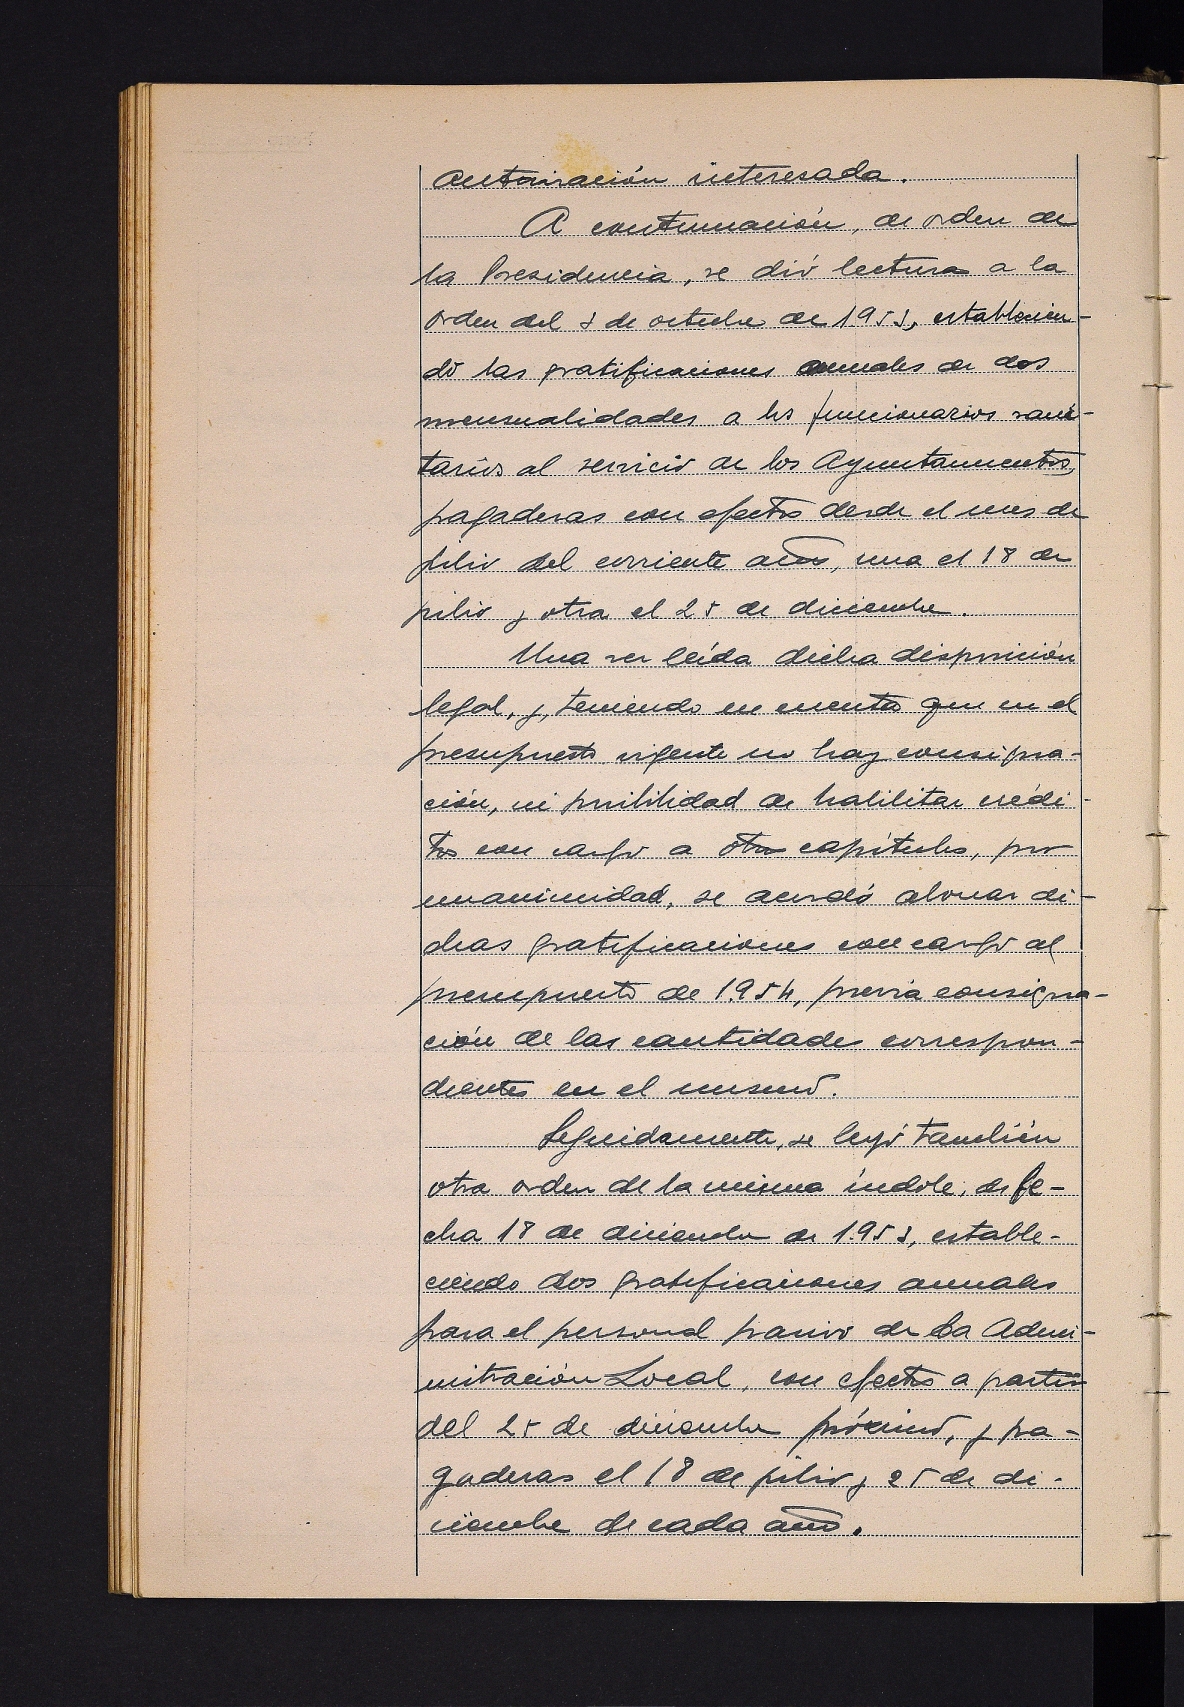 autorización interesada.
A continuación, de orden de
la Presidencia, se dió lectura a la
orden del 3 de octubre de 1953, establecien-
do las gratificaciones anuales de dos
mensualidades a los funcionarios sani-
tarios al servicio de los Ayuntamientos,
pagaderas con efectos desde el mes de
julio del corriente año, una el 18 de
julio y otra el 25 de diciembre.
Una vez leída dicha disposición
legal, y, teniendo en cuenta que en el
presupuesto vigente no hay consigna-
ción, ni posibilidad de habilitar crédi-
tos con cargo a otros capítulos, por
unanimidad, se acordó abonar di-
chas gratificaciones con cargo al
presupuesto de 1.954, previa consigna-
ción de las cantidades correspon-
dientes en el mismo.
Seguidamente, se leyó también
otra orden de la misma índole, de fe-
cha 18 de diciembre de 1.953, estable-
ciendo dos gratificaciones anuales
para el personal pasivo de la Admi-
nistración Local, con efectos a partir
del 25 de diciembre próximo, y pa-
gaderas el 18 de julio y 25 de di-
ciembre de cada año.